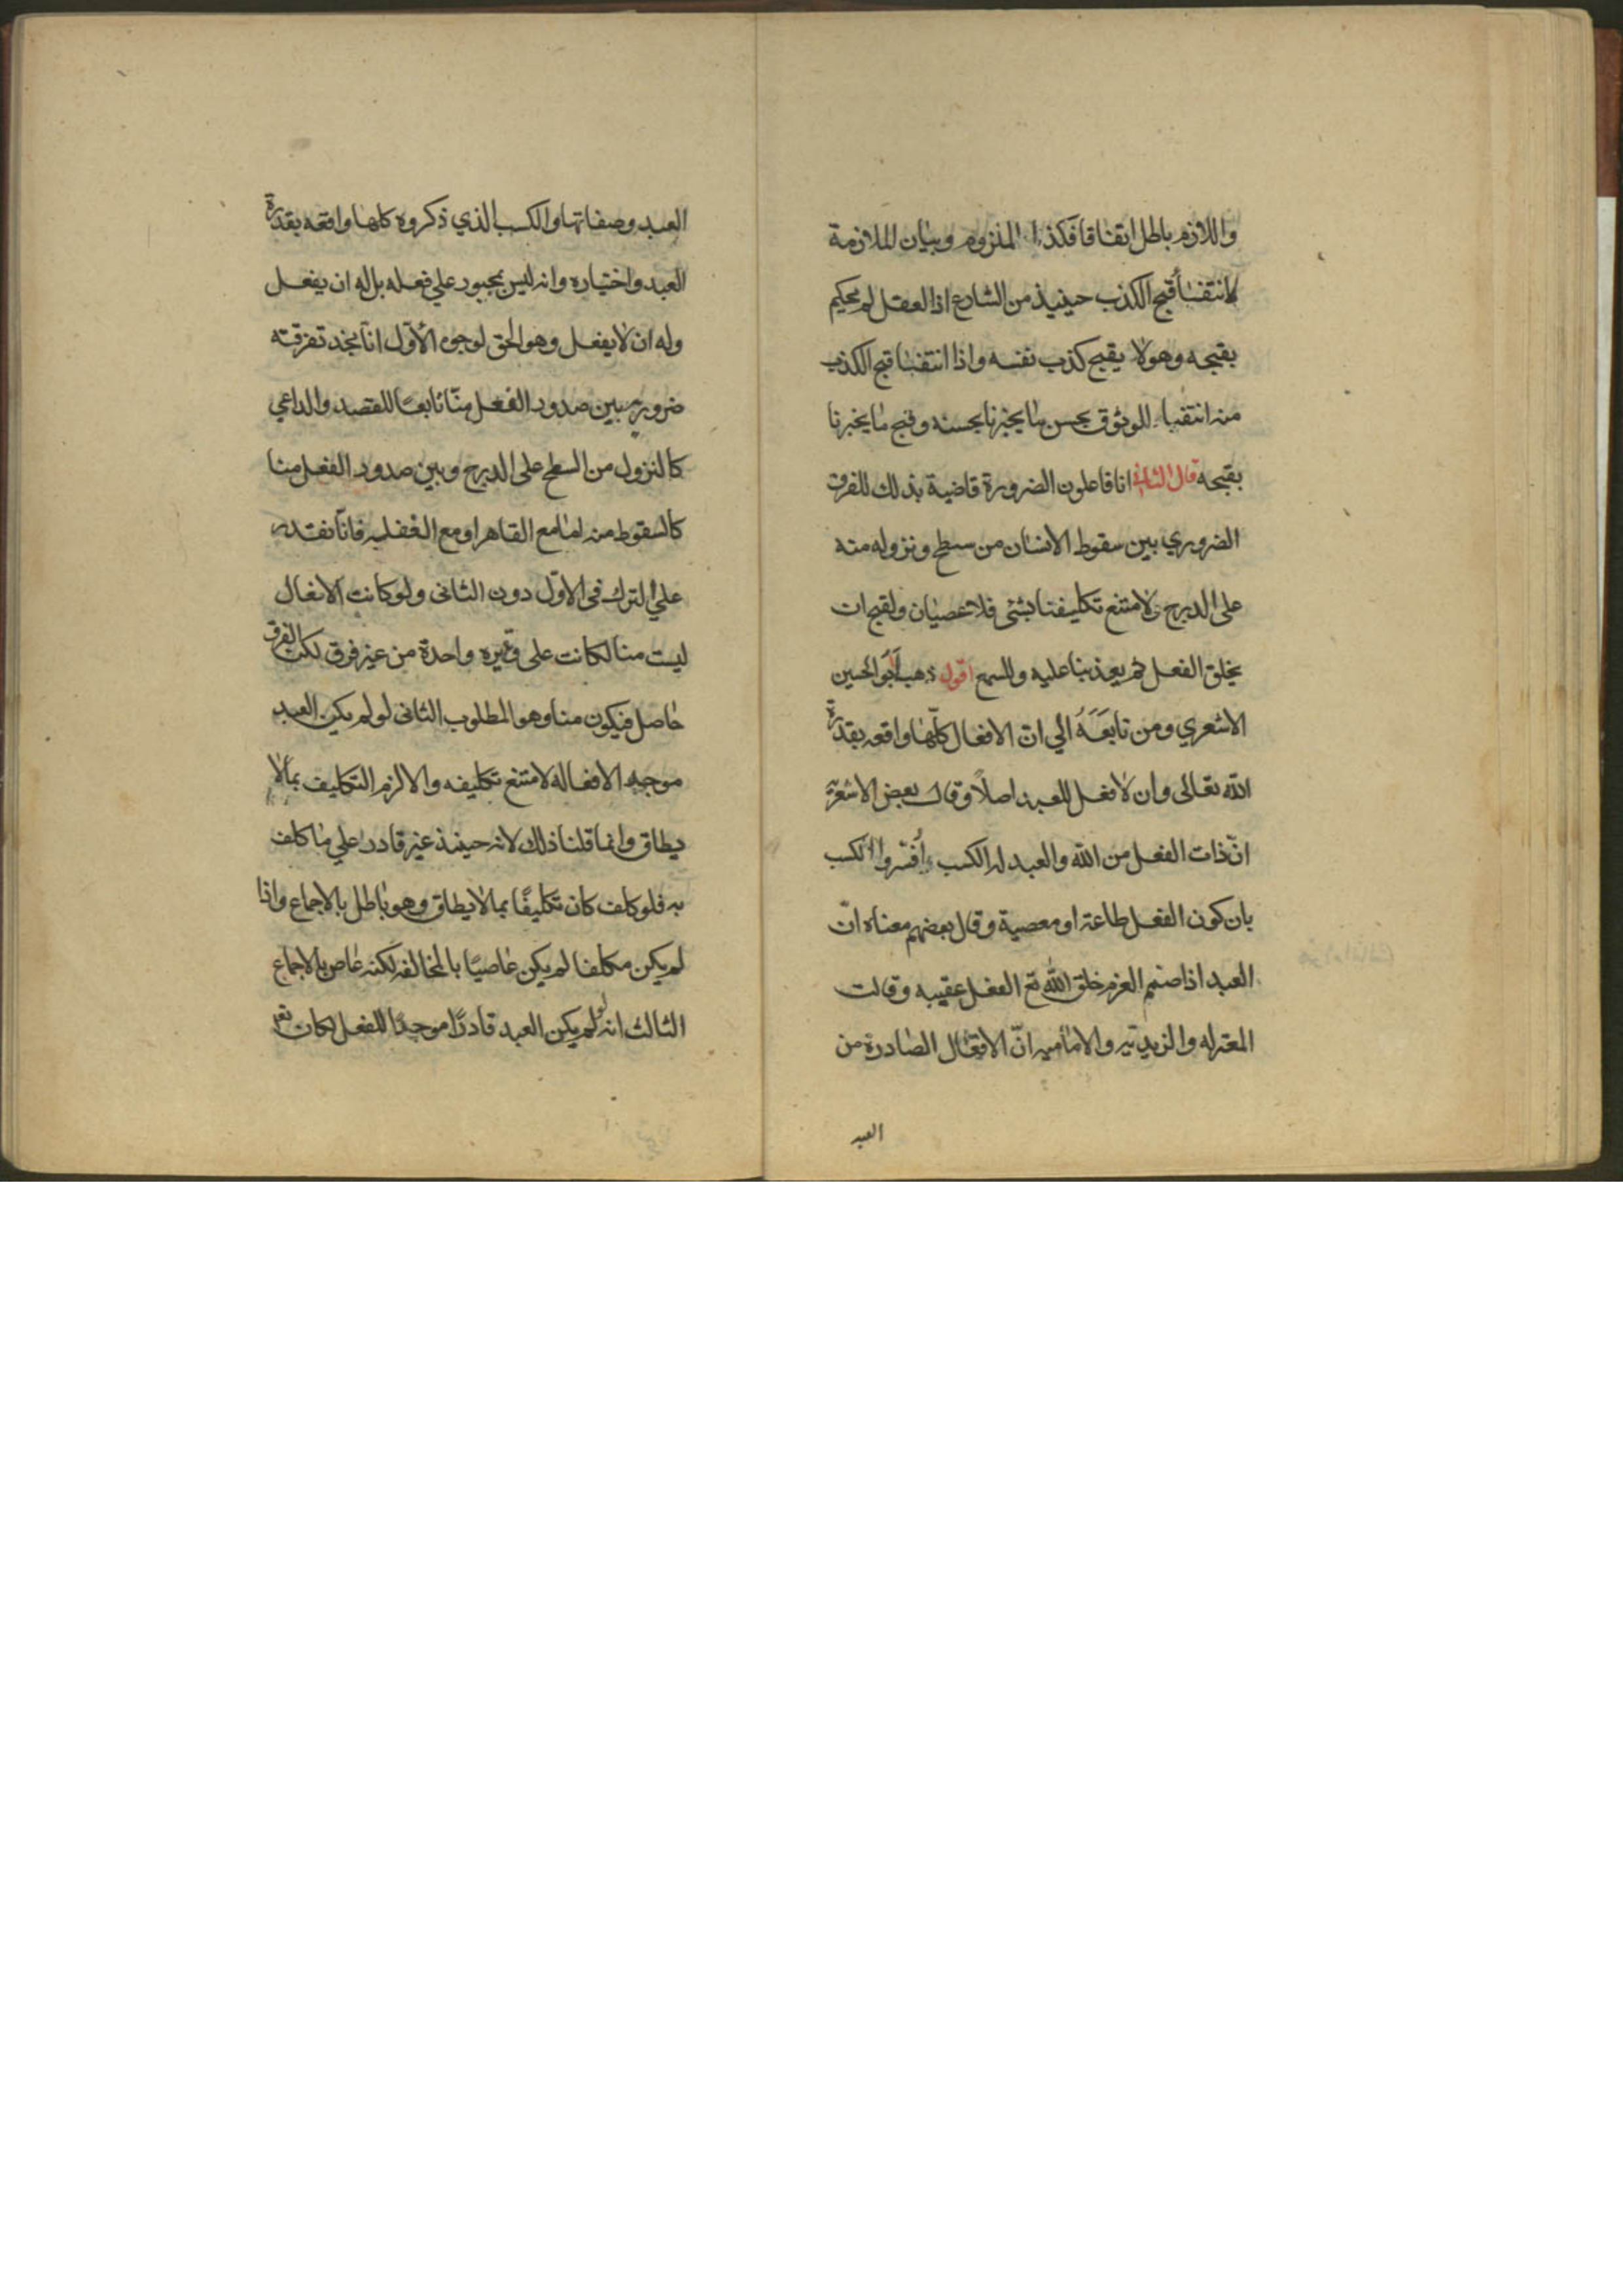 واللازم باطل اتفاقا فكذا الملزوم وبيان الملازمة
لانتفاء قبح الكذب حينيذ من الشارع اذا العقل لم يحكم
بقبحه وهو لا يقبح كذب نفسه واذا انتفا قبح الكذب
منه انتفا الوثوق بحسن ما يخبرنا بحسنه وقبح ما يخبرنا
بقبحه قال الثاني انا فاعلون الضرورة قاضية بذلك للفرق
الضروري بين سقوط الانسان من سطح ونزوله منه
على الدرج ولامتنع تكليفنا بشئ فلا عصيان ولقبح ان
يخلق الفعل ثم يعذبنا عليه وللسمع اقول ذهب ابو الحسين
الاشعري ومن تابعَهُ الي ان الافعال كلّها واقعه بقدرة
الله تعالى وان لا فعل للعبد اصلاً وقال بعض الاشعرية
انّ ذات الفعل من الله والعبد له الكسب وفسّروا الكسب
بان كون الفعل طاعة او معصية وقال بعضهم معناه انّ
العبد اذا صمم العزم خلق الله تع الفعل عقيبه وقالت
المعتزله والزيديّه والاماميه انّ الافعال الصادرة من
العبد
العبد وصفاتها والكسب الذي ذكروه كلها واقعه بقدرة
العبد واختياره وانه ليس بمجبور علي فعله بل له ان يفعل
وله ان لا يفعل وهو الحق لوجوه الاوّل انّا نجد تفرقته
ضروريه بين صدور الفعل منّا تابعًا للقصد والداعي
كالنزول من السطح على الدرج وبين صدور الفعل منا
كالسقوط منه اما مع القاهر او مع الغفله فانّا نقتدر
علي الترك في الاوّل دون الثاني ولو كانت الافعال
ليست منا لكانت على وتيره واحدة من غير فرق لكن الفرق
حاصل فيكون منا وهو المطلوب الثاني لو لم يكن العبد
موجبه الافعاله لامتنع تكليفه والا لزم التكليف بما لا
يطاق وانما قلنا ذلك لانه حينيذ غير قادر علي ما كلف
به فلو كلف كان تكليفًا بما لا يطاق وهو باطل بالاجماع واذا
لم يكن مكلفا لم يكن عاصيًا بالمخالفه لكنه عاص بالاجماع
الثالث انه لو لم يكن العبد قادرًا موجدًا للفعل لكان تع